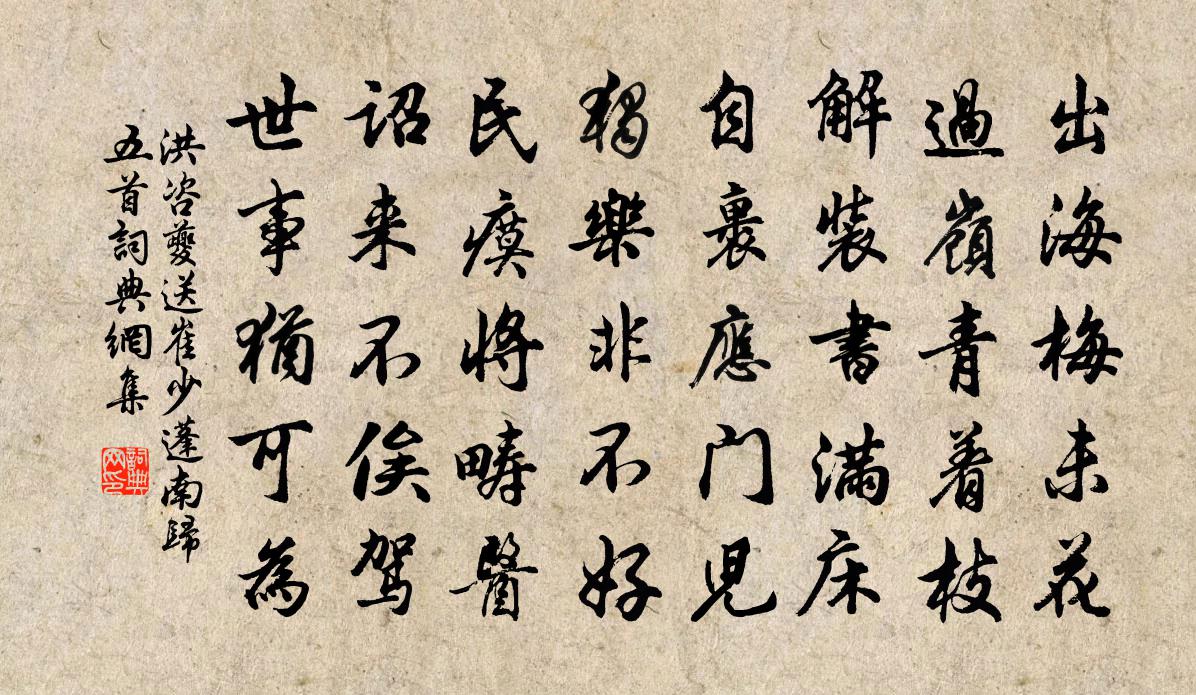 出海梅未花
過嶺青着枝
解裝書滿床
自裹應門児
獨樂非不好
民瘼将疇醫
詔来不俟駕
世事猶可為
洪咨夔送崔少蓬南歸
五首詞典網集
詞典
网印